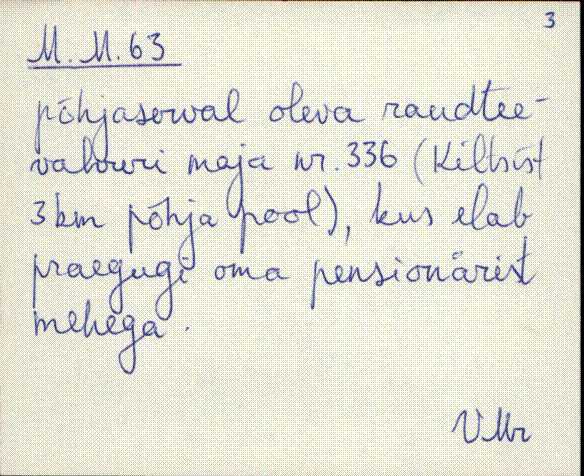 3
M. M. 63
põhjaserval oleva raudtee-
vahuri maja nr. 336 (Kiltsist
3 km põhja pool), kus elab
praegugi oma pensionärist
mehega.
VMr